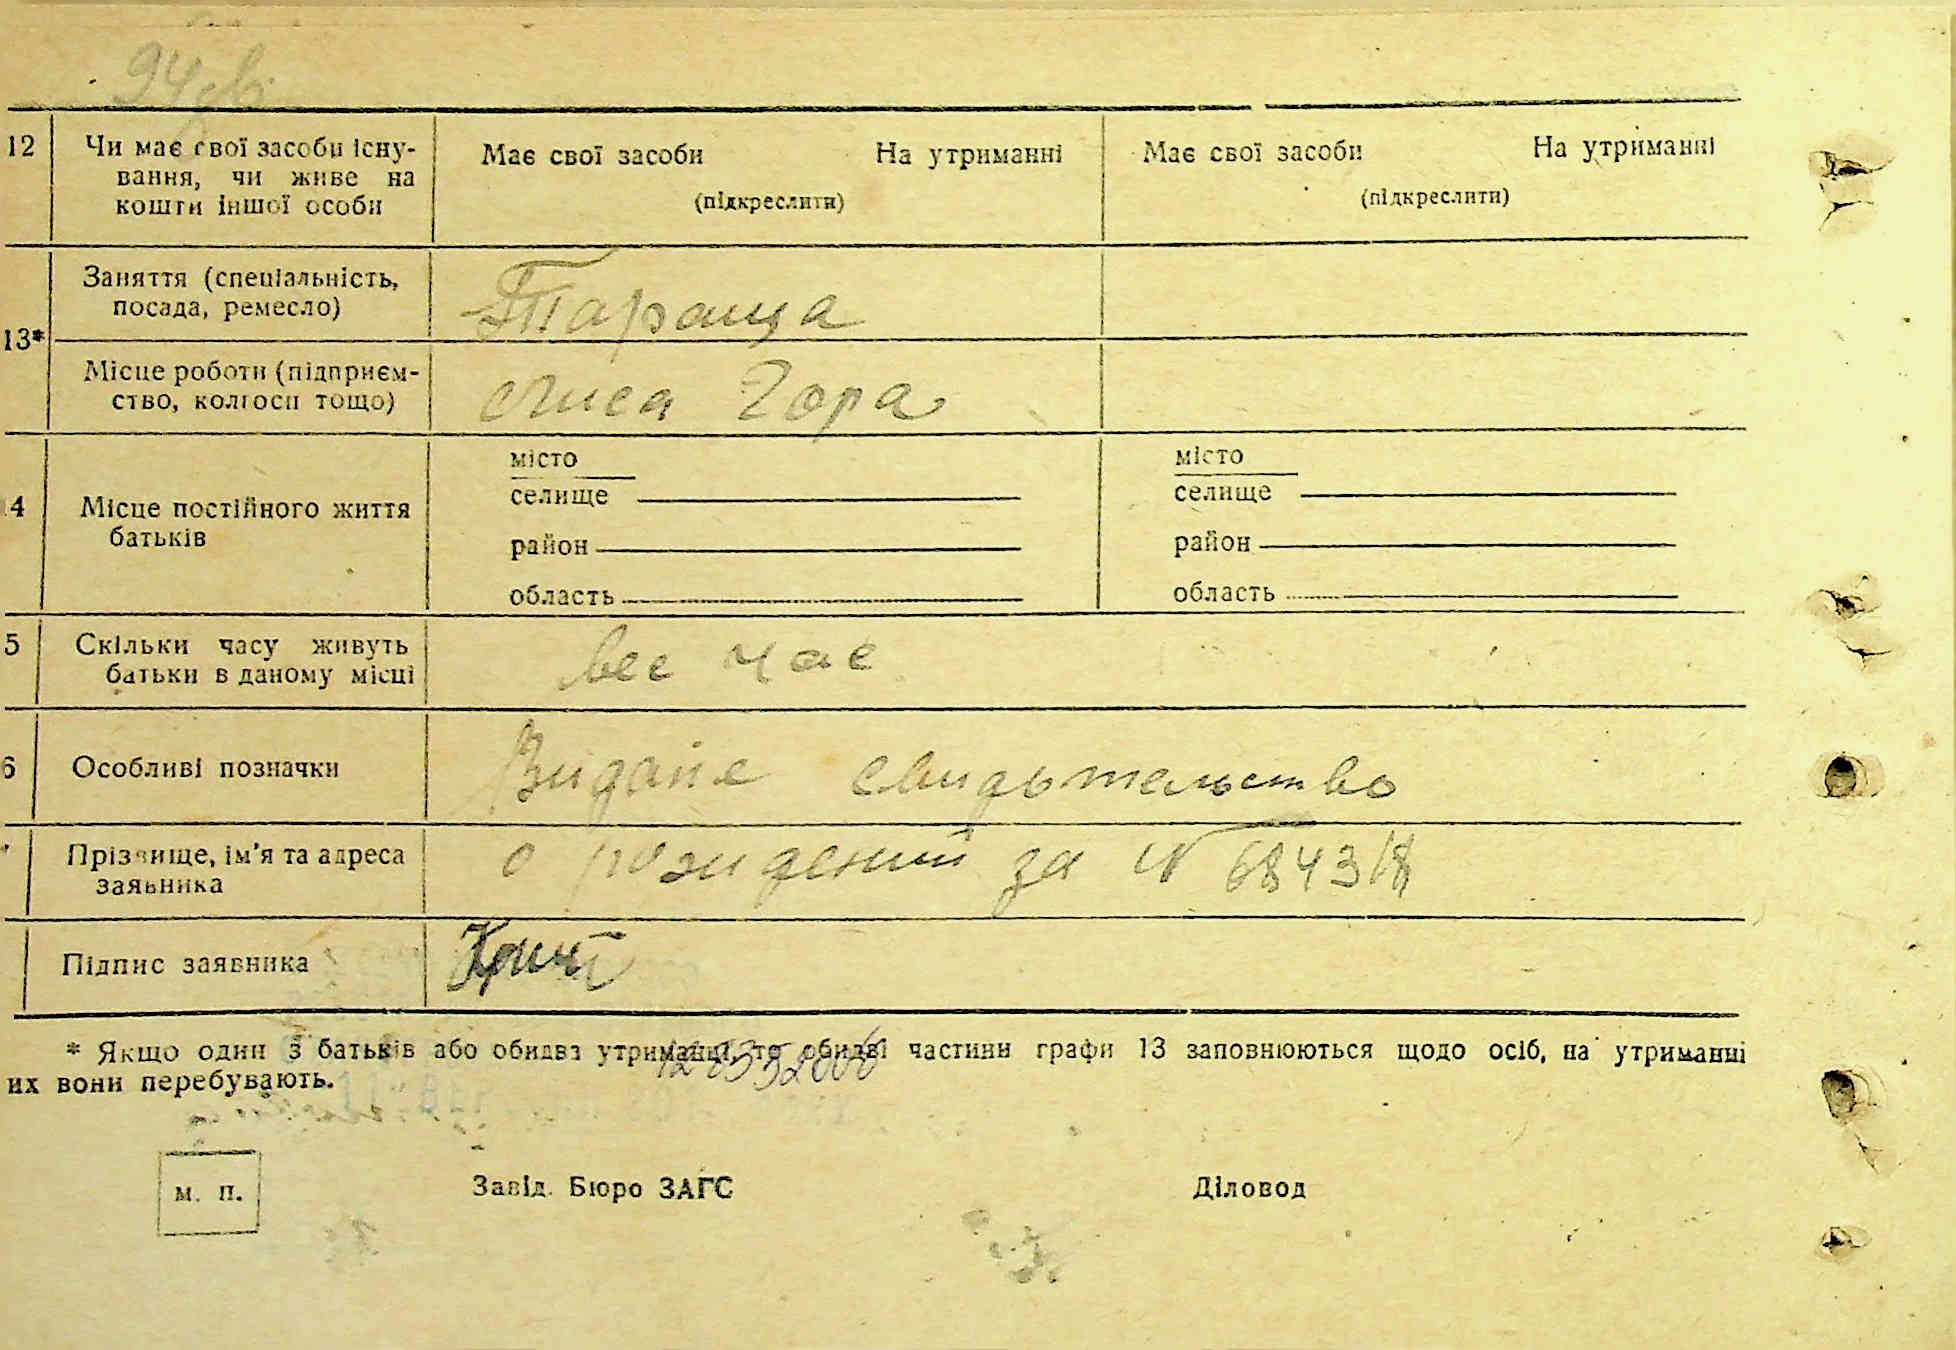 12 Чи має свої засоби існу-
вання, чи живе на
кошти іншої особи
Має свої засоби На утриманні
(підкреслити)
Має свої засоби На утриманні
(підкреслити)
13*
Заняття (спеціальність,
посада, ремесло)
Тараща
Місце роботи (підприєм-
ство, колгосп тощо)
Лиса Гора
4 Місце постійного життя
батьків
місто
селище
район
область
місто
селище
район
область
5 Скільки часу живуть
батьки в даному місці
вес час
6 Особливі позначки
Видане свидьтельство
Прізвище, ім'я та адреса
заявника
о рождении за №
Підпис заявника
* Якщо один з батьків або обидва утриманці, то обидві частини графи 13 заповнюються щодо осіб, на утриманні
их вони перебувають.
м. п.
Завід. Бюро ЗАГС
Діловод